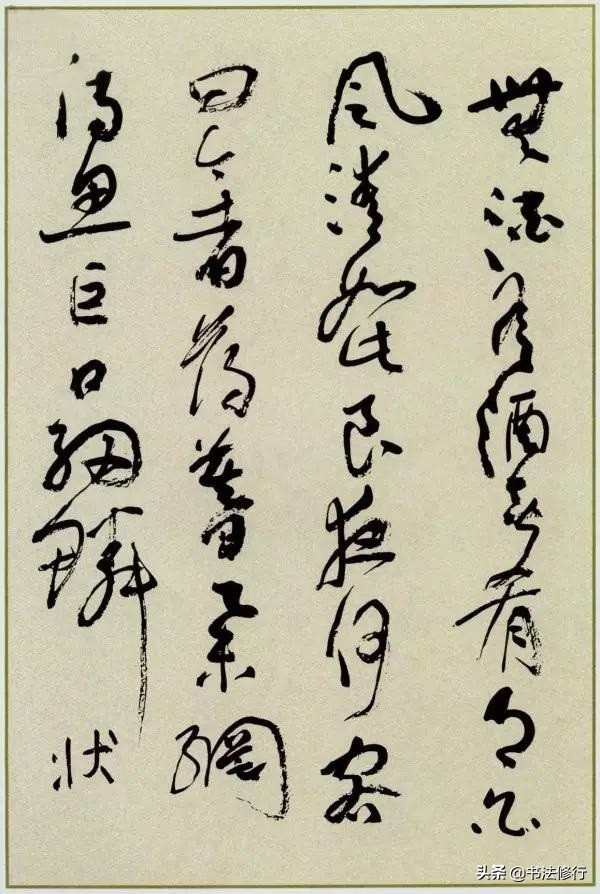 無酒有酒無肴月白
風清如此良夜何客
曰今者薄暮舉網
得魚巨口細鱗状
头条 @书法修行